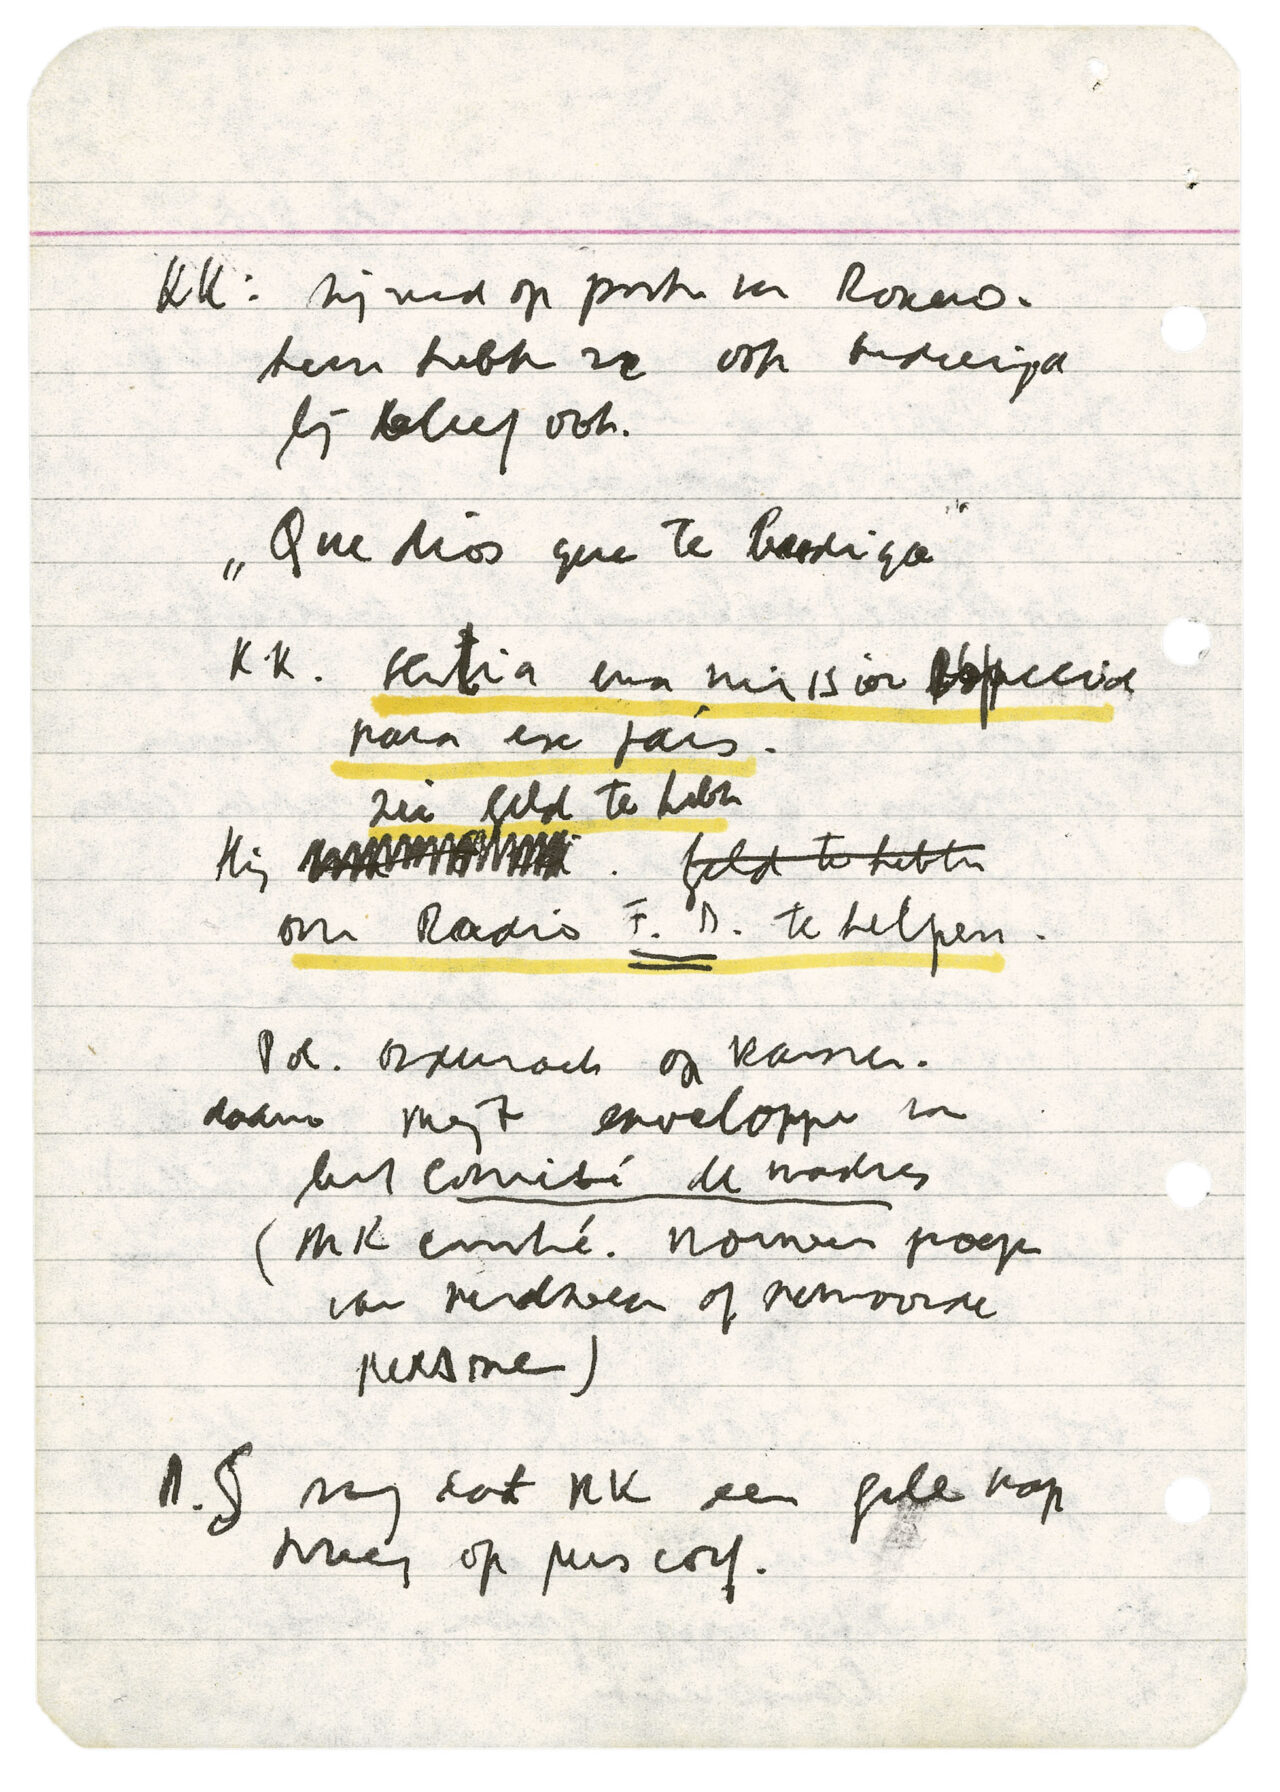 KK: hij werd op van Romero.
hem hebben ze ook bedreigd
hij bleef ook.
„Que dios que te bendiga"
K.K. sentia una mision especial
para ese pais.
zei geld te hebben
Hij . geld te hebben
om Radio F. M. te helpen.
Pol. onderzoek op kamer.
daarna met enveloppe van
het Comité de madres
(MK comité. vormen groep
van verdwenen of vermoorde
personen)
zag dat KK een gele map
kreeg op pers conf.